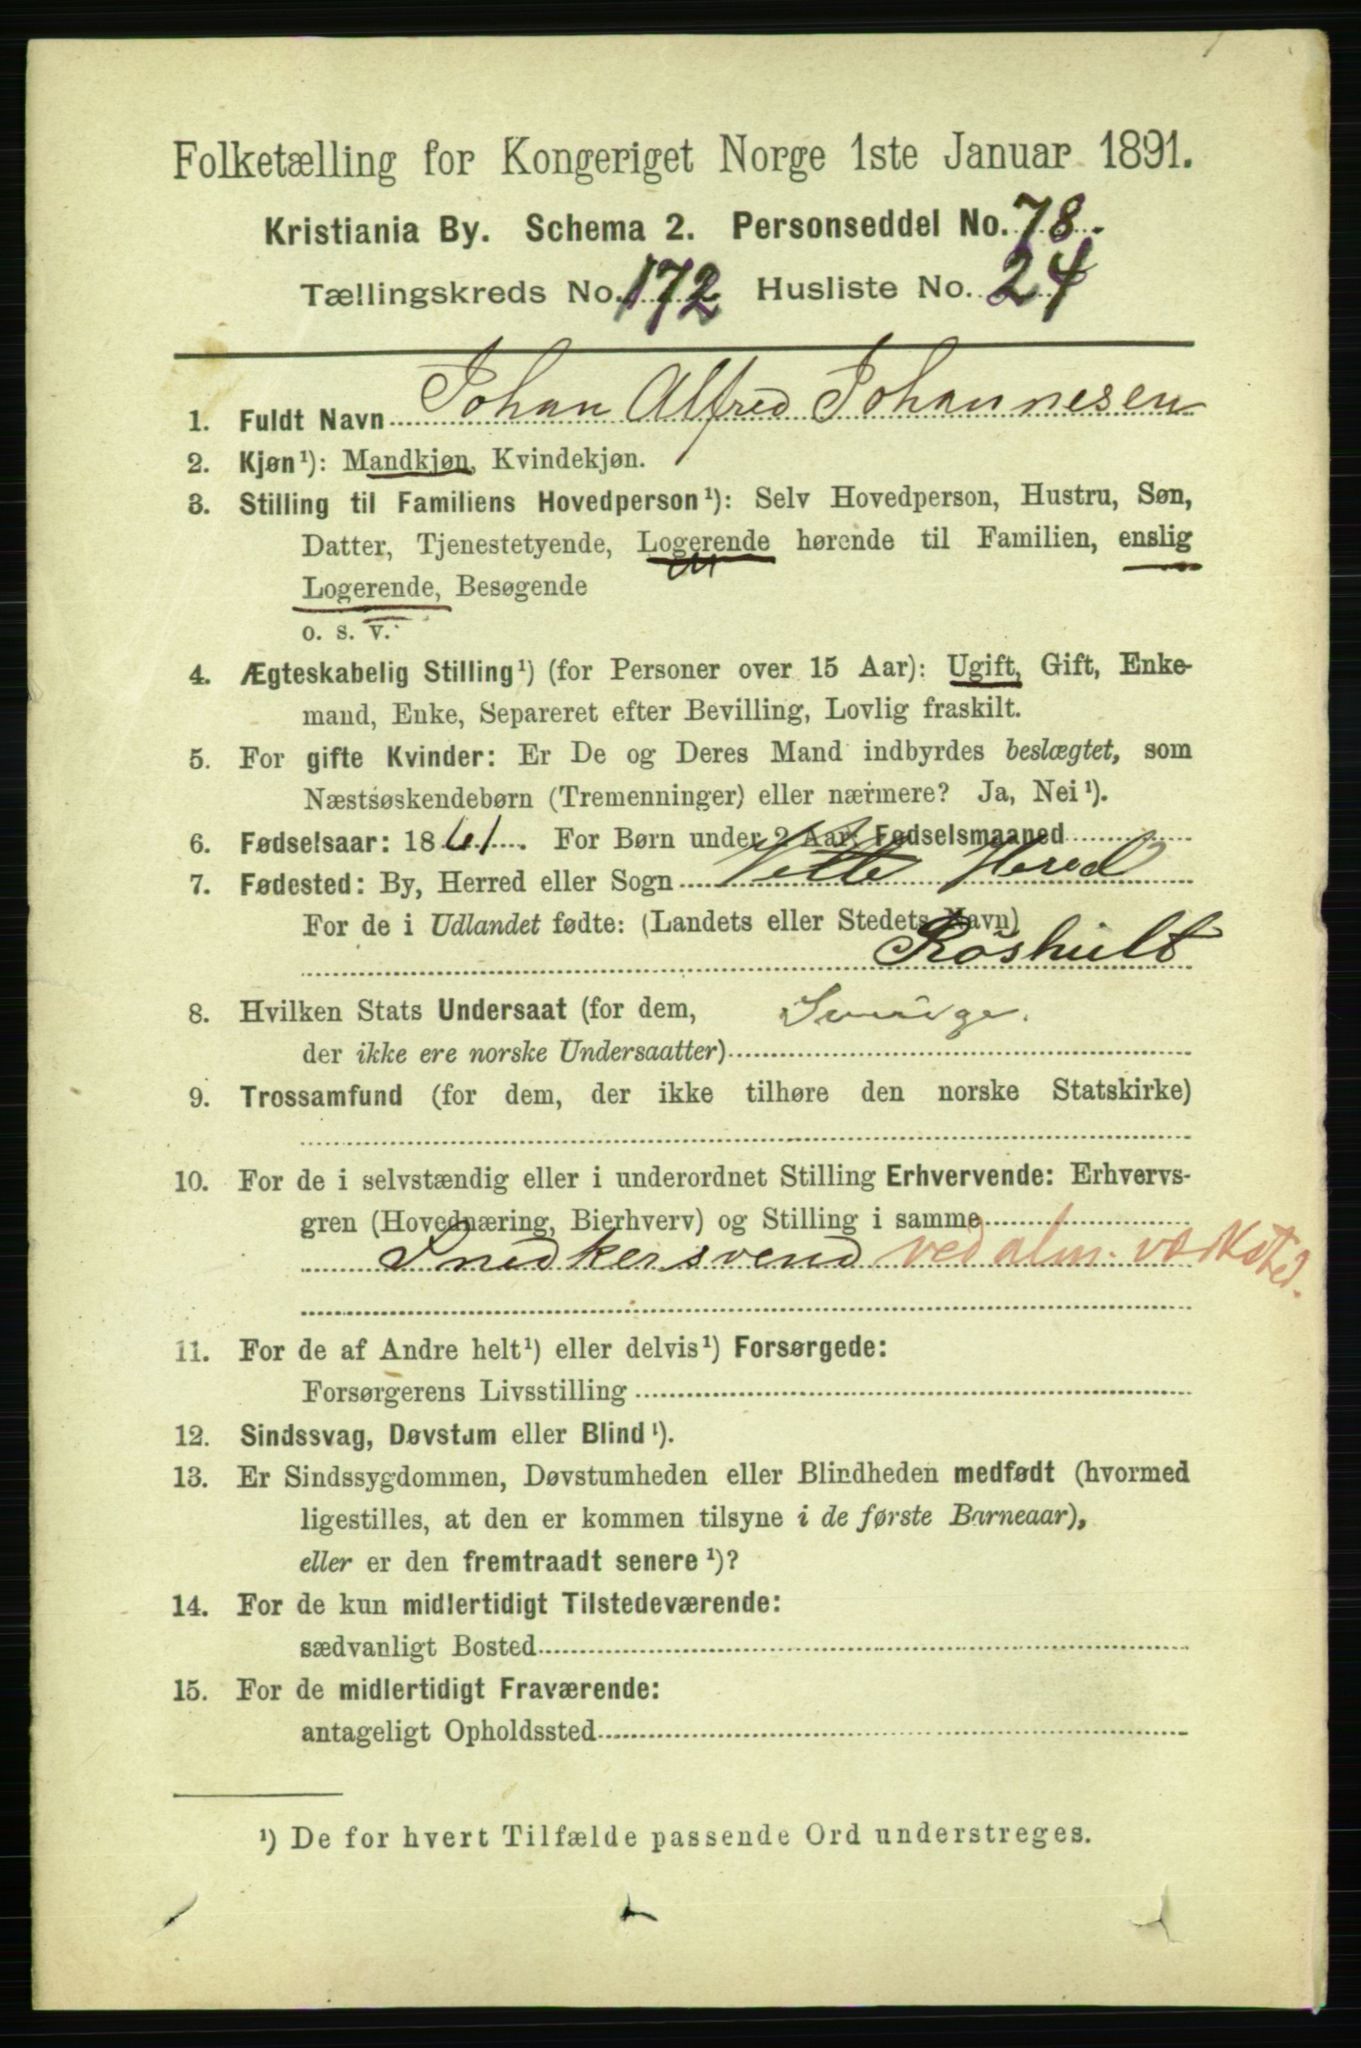 Folketælling for Kongeriget Norge 1ste Januar 1891.
Kristiania By. Schema 2. Personseddel No. 78.
Tællingskreds No. 172 Husliste No. 24
1. Fuldt Navn Johan Alfred Johannesen
2. Kjøn¹): Mandkjøn, Kvindekjøn.
3. Stilling til Familiens Hovedperson¹): Selv Hovedperson, Hustru, Søn,
Datter, Tjenestetyende, Logerende hørende til Familien, enslig
Logerende, Besøgende
o. s. v.
4. Ægteskabelig Stilling¹) (for Personer over 15 Aar): Ugift, Gift, Enke-
mand, Enke, Separeret efter Bevilling, Lovlig fraskilt.
5. For gifte Kvinder: Er De og Deres Mand indbyrdes beslægtet, som
Næstsøskendebørn (Tremenninger) eller nærmere? Ja, Nei¹).
6. Fødselsaar: 1861. For Børn under 2 Aar: Fødselsmaaned
7. Fødested: By, Herred eller Sogn Vette Hered
For de i Udlandet fødte: (Landets eller Stedets Navn)
Röshult
8. Hvilken Stats Undersaat (for dem, Sverige.
der ikke ere norske Undersaatter)
9. Trossamfund (for dem, der ikke tilhøre den norske Statskirke)
10. For de i selvstændig eller i underordnet Stilling Erhvervende: Erhvervs-
gren (Hovednæring, Bierhverv) og Stilling i samme
Snedkersvend ved alm. værksted.
11. For de af Andre helt¹) eller delvis¹) Forsørgede:
Forsørgerens Livsstilling
12. Sindssvag, Døvstum eller Blind¹).
13. Er Sindssygdommen, Døvstumheden eller Blindheden medfødt (hvormed
ligestilles, at den er kommen tilsyne i de første Barneaar),
eller er den fremtraadt senere¹)?
14. For de kun midlertidigt Tilstedeværende:
sædvanligt Bosted
15. For de midlertidigt Fraværende:
antageligt Opholdssted
¹) De for hvert Tilfælde passende Ord understreges.